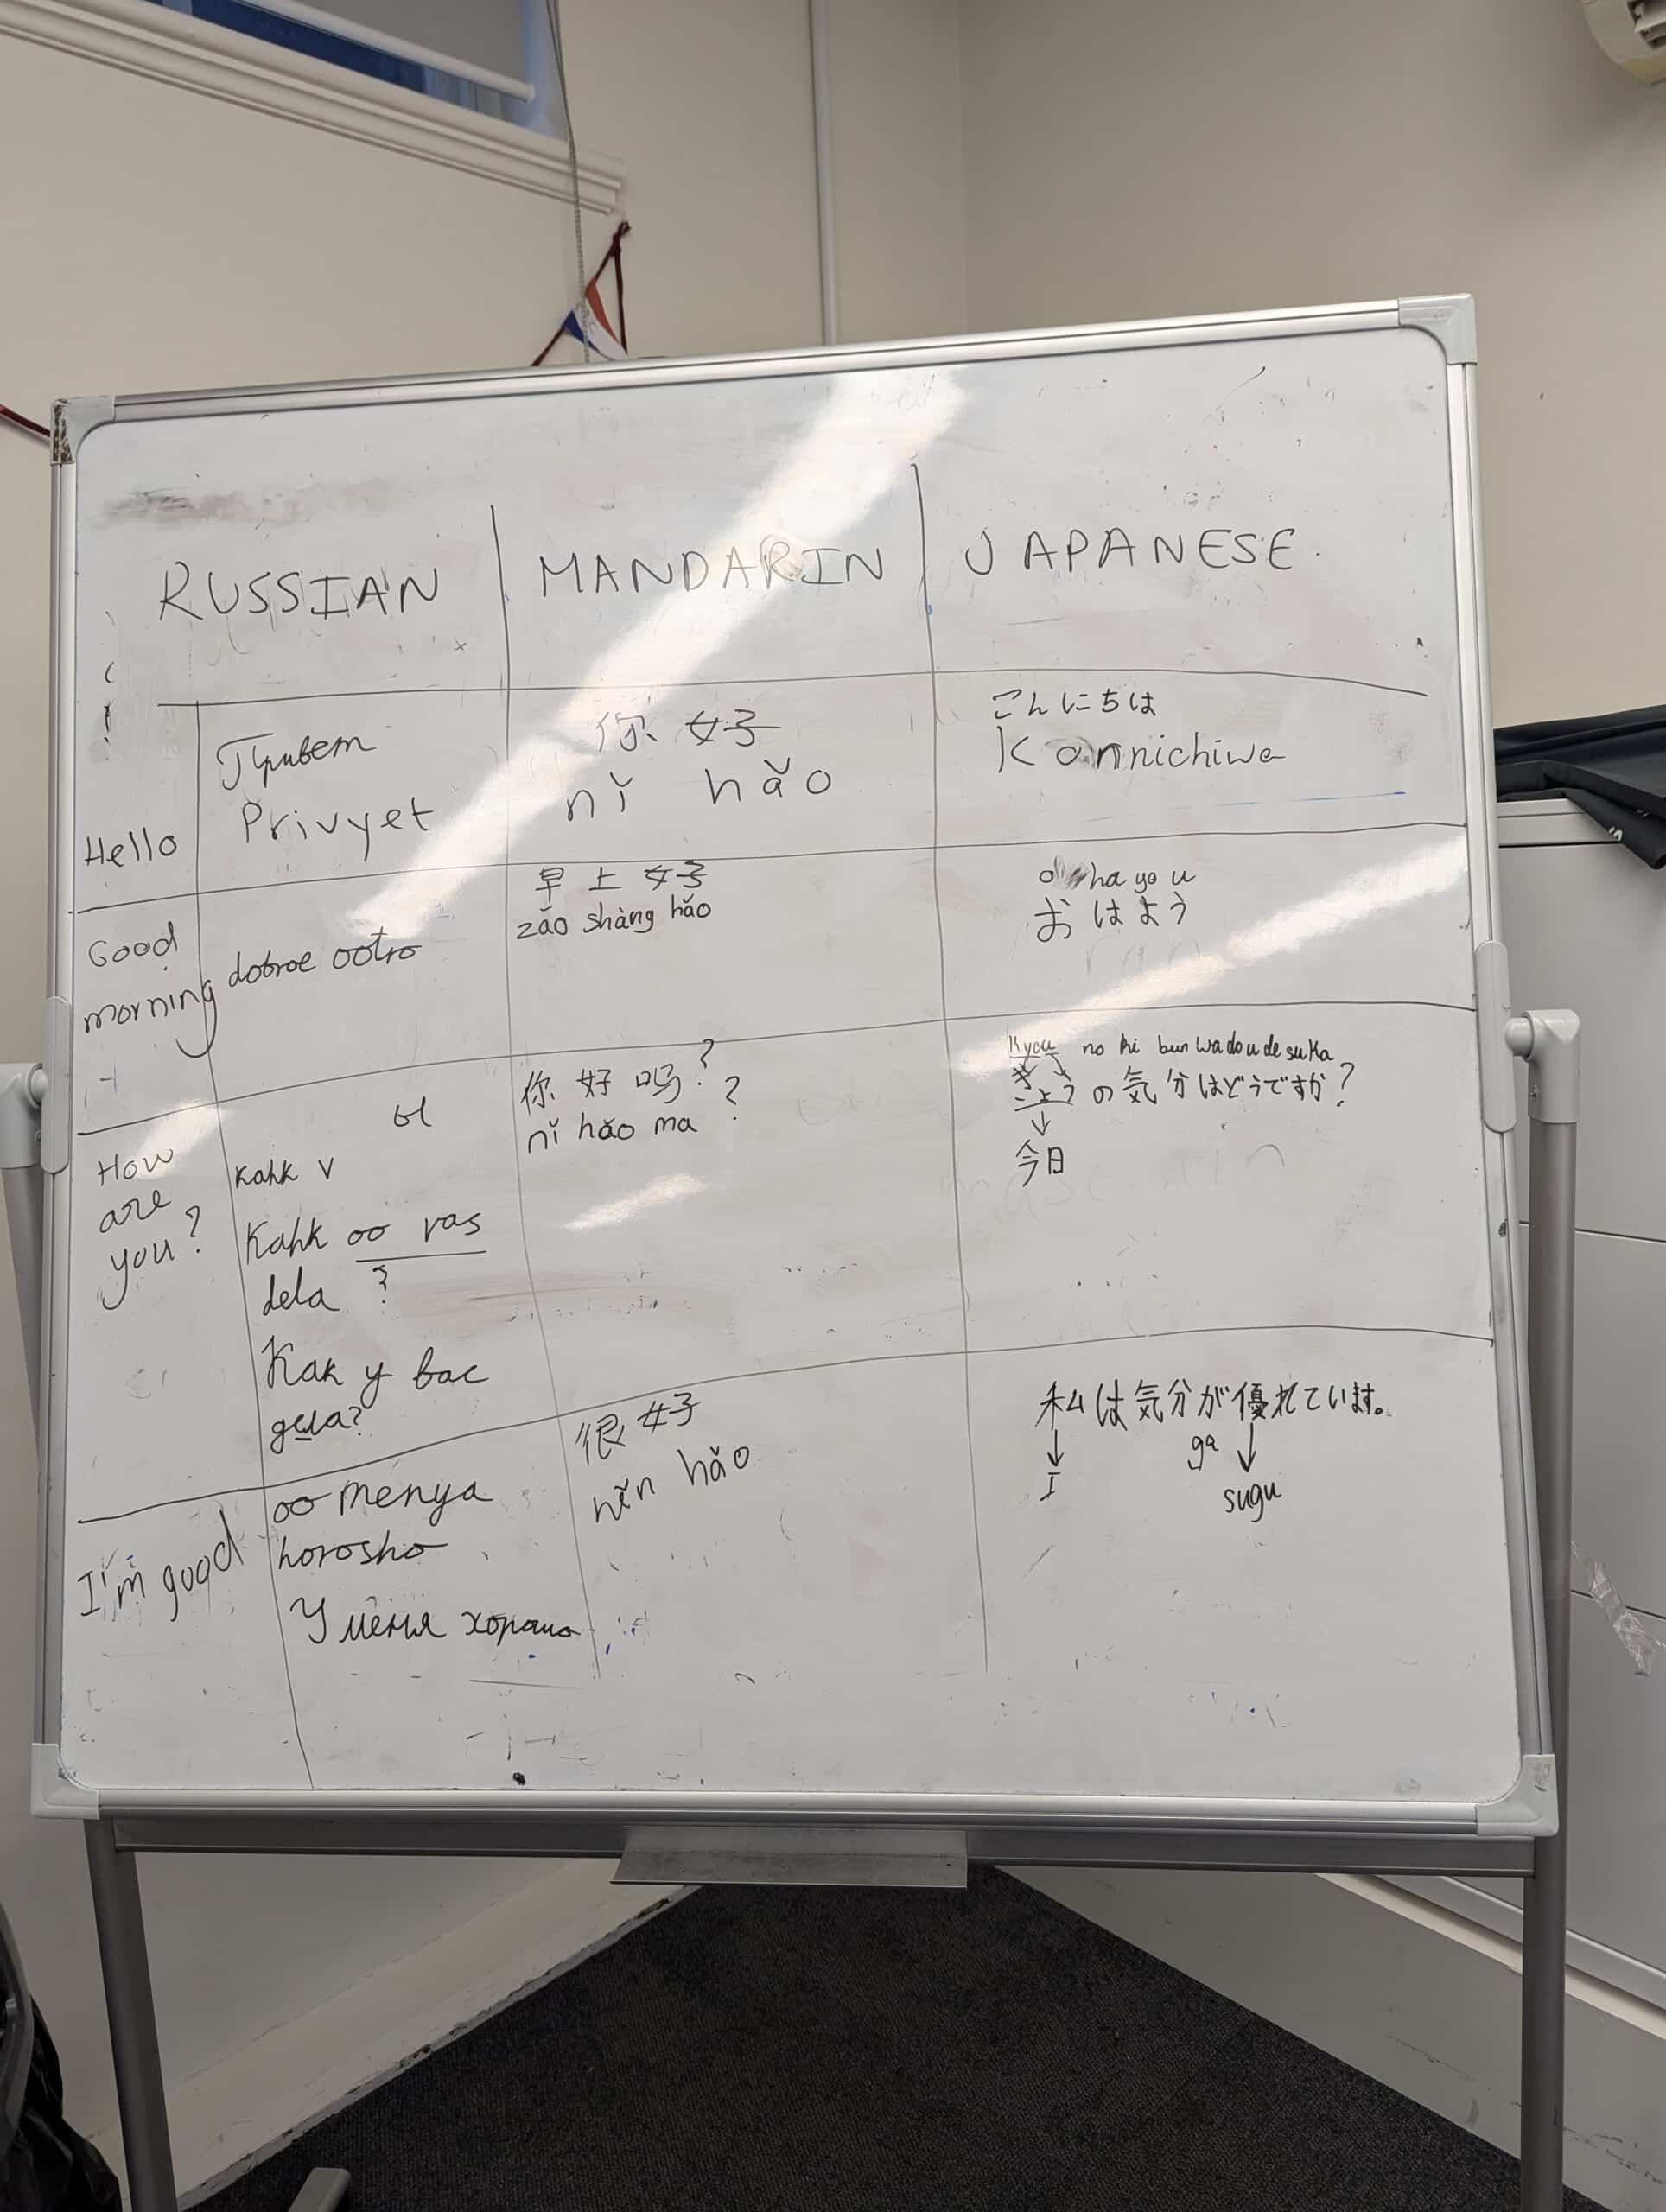 RUSSIAN MANDARIN JAPANESE
Hello
Привет
Privyet
你 好
nǐ hǎo
こんにちは
Konnichiwa
Good
morning
dobroe ootro
早 上 好
zǎo shàng hǎo
ohayou
おはよう
How
are
you?
ы
Kahk v
Kahk oo vas
dela ?
Как у вас
дела?
你 好 吗?
nǐ hǎo ma ?
Kyou no ki bun wa dou desu ka
きょうの気分はどうですか?
今日
I'm good
oo menya
horosho
У меня хорошо
很 好
hěn hǎo
私は気分が優れています。
I
ga
sugu